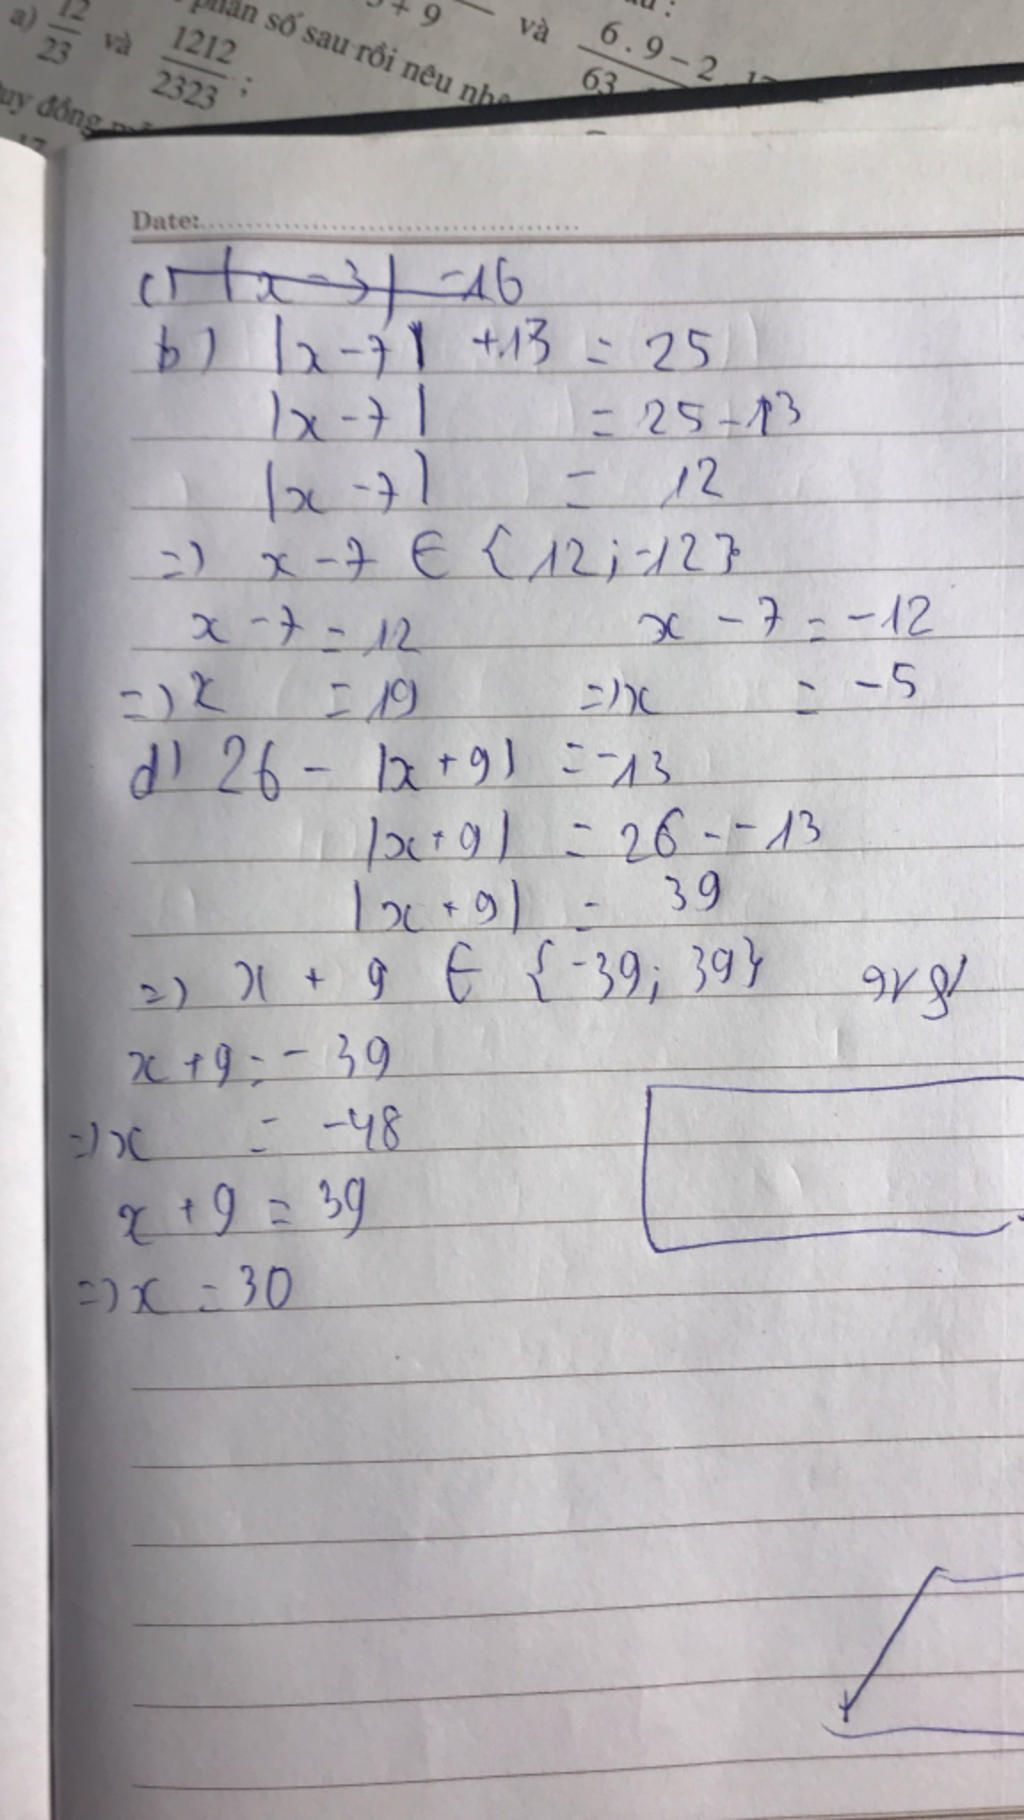 3 + 9
và
6 . 9 – 2
63
a) 12/23 và 1212/2323 ;
phân số sau rồi nêu
uy đồng
Date:
c) |x - 3| = 16
b) |x - 7| + 13 = 25
|x - 7| = 25 - 13
|x - 7| = 12
=) x - 7 ∈ {12; -12}
x - 7 = 12 x - 7 = -12
=) x = 19 =) x = -5
d) 26 - |x + 9| = -13
|x + 9| = 26 - -13
|x + 9| = 39
=) x + 9 ∈ {-39; 39}
x + 9 = - 39
=) x = -48
x + 9 = 39
=) x = 30